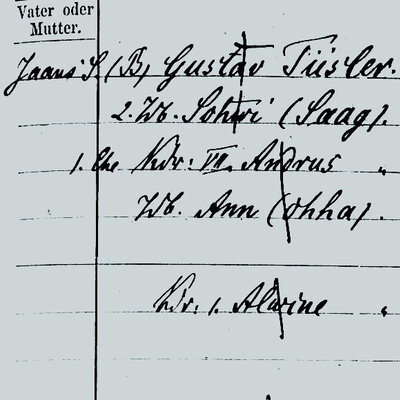 Vater oder
Mutter.
Jaani S. (B) Gustav Tüsler.
2. Wb. Sohwi (Saag).
1. Ehe Kdr: VII. Andrus "
Wb. Ann (Ohha).
Kdr: 1. Alwine "